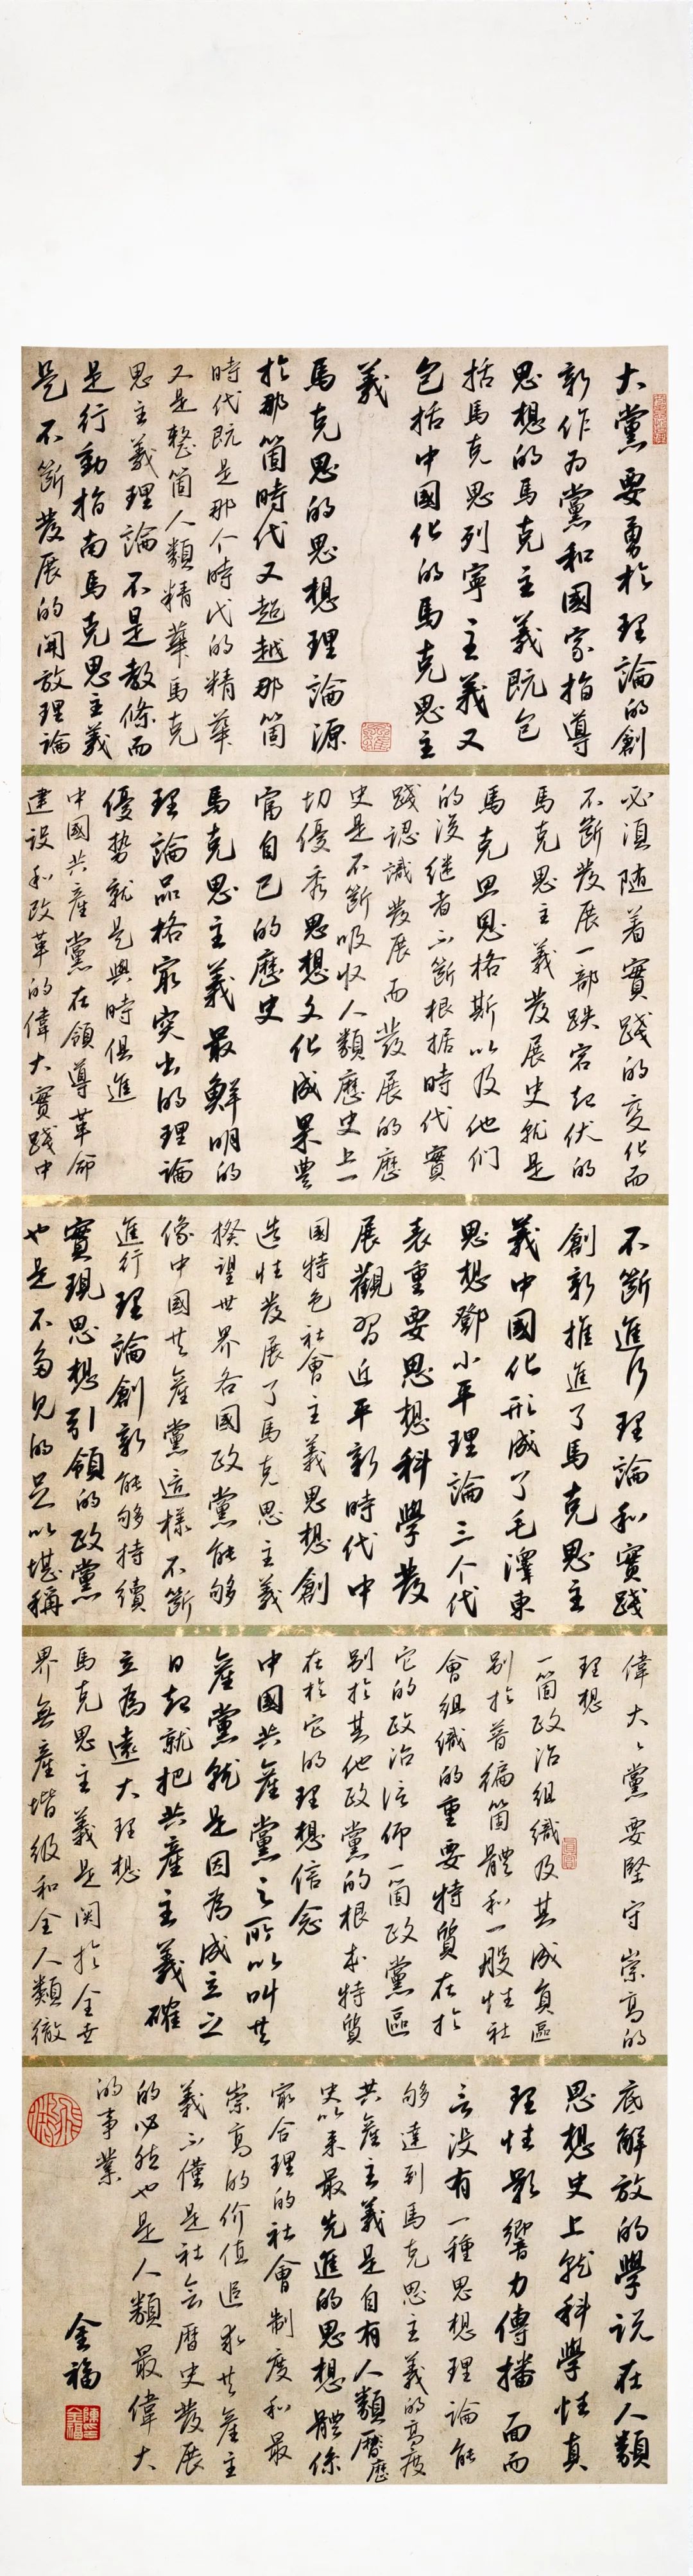 大黨要勇於理論的創
新作為黨和國家指導
思想的馬克主義既包
括馬克思列寧主義又
包括中國化的馬克思主
義
馬克思的思想理論源
於那箇時代又超越那箇
時代既是那个時代的精華
又是整箇人類精華馬克
思主義理論不是教條而
是行動指南馬克思主義
是不斷發展的開放理論
必須随着實踐的变化而
不斷發展一部跌宕起伏的
馬克思主義發展史就是
馬克思恩格斯以及他們
的後継者不斷根据時代實
踐認識發展而發展的歷
史是不斷吸收人類歷史上一
切優秀思想文化成果豊
富自己的歷史
馬克思主義最鮮明的
理論品格最突出的理論
優勢就是與時俱進
中國共產黨在領導革命
建設和改革的偉大實踐中
不斷進行理論和實踐
創新推進了馬克思主
義中國化形成了毛澤東
思想鄧小平理論三个代
表重要思想科學發
展觀習近平新時代中
國特色社會主義思想創
造性發展了馬克思主義
揆望世界各國政黨能够
像中國共產黨這樣不斷
進行理論創新能够持續
實現思想引領的政黨
也是不多見的足以堪稱
偉大大黨要堅守崇高的
理想
一箇政治組織及其成員區
别於普徧箇體和一般性社
會組織的重要特質在於
它的政治信仰一箇政黨區
别於其他政黨的根本特質
在於它的理想信念
中國共產黨之所以叫共
產黨就是因為成立之
日起就把共產主義確
立為遠大理想
馬克思主義是関於全世
界無產堦级和全人類徹
底解放的學说在人類
思想史上就科學性真
理性影響力傳播面而
言没有一種思想理論能
够達到馬克思主義的高度
共產主義是自有人類曆歷
史以来最先進的思想體係
最合理的社會制度和最
崇高的价值追求共產主
義不僅是社会曆史發展
的必然也是人類最偉大
的事業
金福